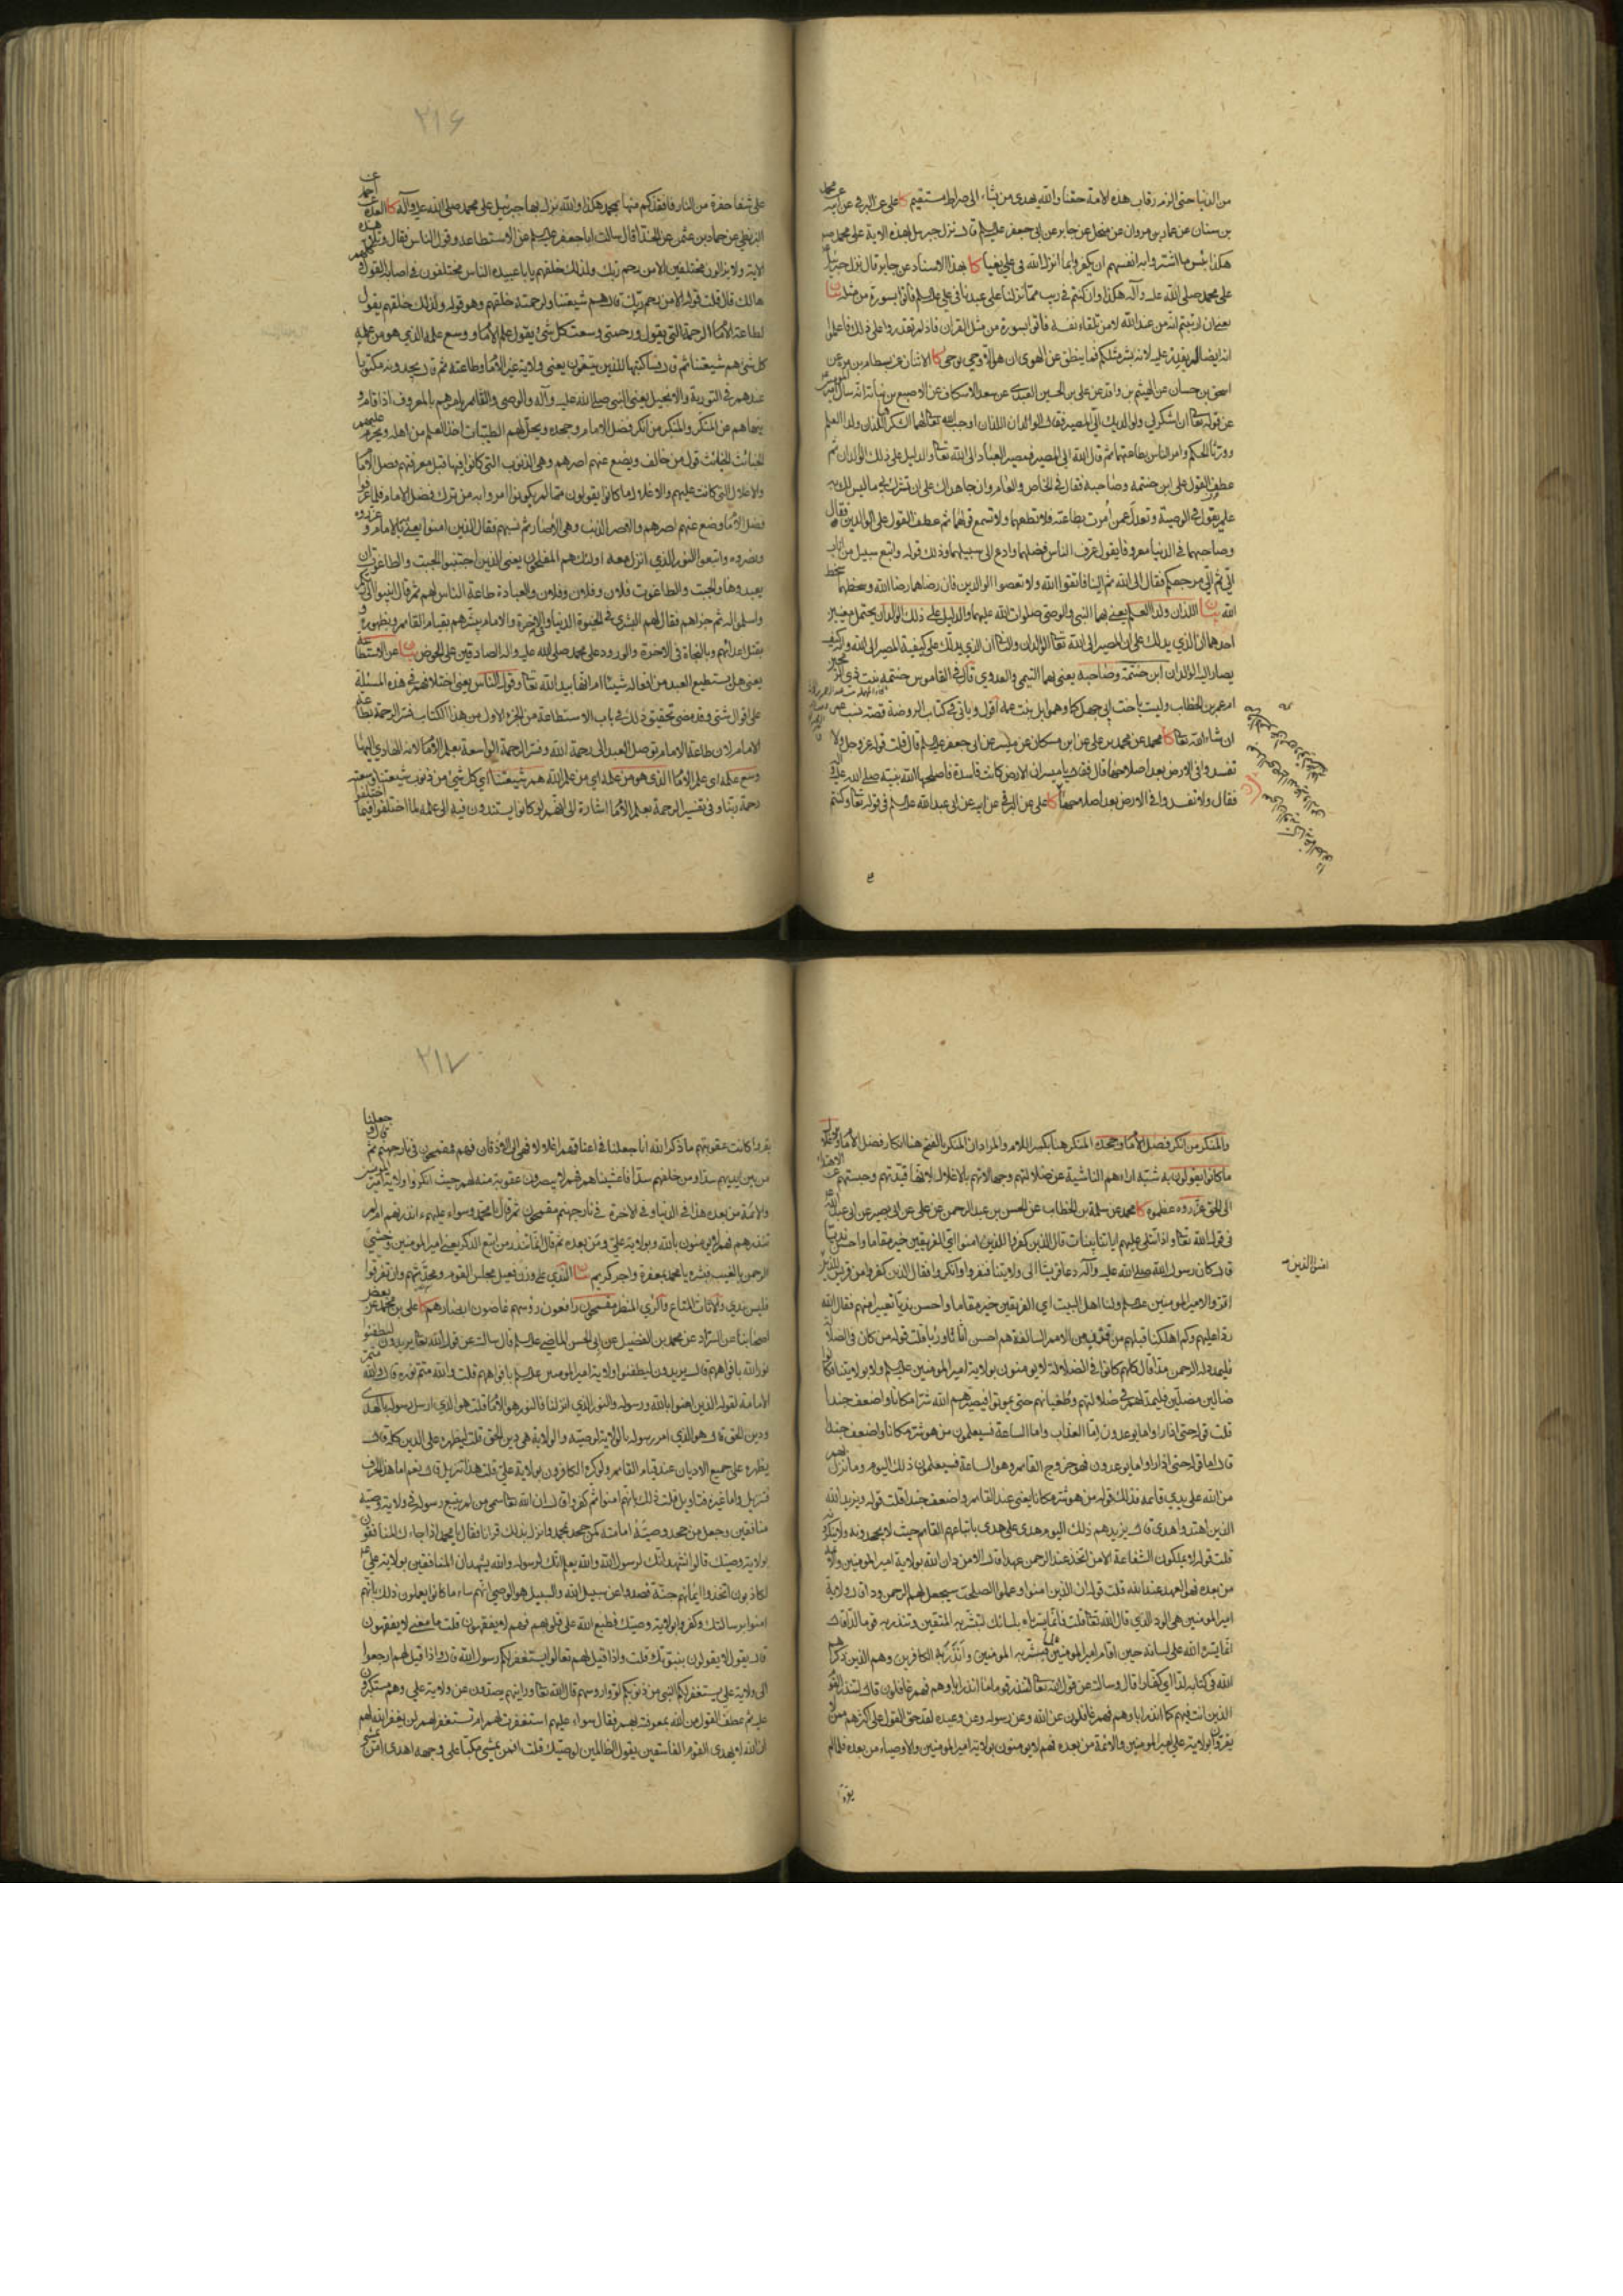 من الدنيا حتى الزم رقاب هذه الامة حقنا والله يهدى من يشاء الى صراط مستقيم كا على عن البرقى عن ابيه عن محمد
بن سنان عن عمار بن مروان عن منخل عن جابر عن ابى جعفر قال نزل جبرئيل بهذه الاية على محمد
هكذا بئس ما اشتروا به انفسهم ان يكفروا بما انزل الله فى على بغيا كا بهذا الاسناد عن جابر قال نزل
على محمد صلى الله عليه وآله هكذا وان كنتم فى ريب مما نزلنا على عبدنا فى على فأتوا بسورة من مثله
يعنى ان ارتبتم انه من عند الله لا من تلقاء نفسه فأتوا بسورة من مثل القران فاذا لم تقدروا على ذلك فاعلموا
كا الاثنان عن بسطام بن مرة عن
اسحق بن حسان عن الهيثم بن واقد عن على بن الحسين العبدى عن سعد الاسكاف عن الاصبغ بن نباتة انه سال امير المؤمنين
عن قوله تعا ان اشكر لى ولوالديك الى المصير فقال الوالدان اللذان اوجب الله تعا لهما الشكر هما اللذان ولدا العلم
وورثا الحكم وامر الناس بطاعتهما ثم قال الله الى المصير فمصير العباد الى الله تعا والدليل على ذلك الوالدان ثم
عطف القول على ابن حنتمه وصاحبه فقال فى الخاص والعام وان جاهداك على ان تشرك بى ما ليس لك به
علم يقول فى الوصية وتعدل عمن امرت بطاعته فلا تطعهما ولا تسمع قولهما ثم عطف القول على الوالدين فقال
وصاحبهما فى الدنيا معروفا يقول عرف الناس فضلهما وادع الى سبيلهما وذلك قوله واتبع سبيل من اناب
الى ثم الى مرجعكم فقال الى الله ثم الينا فاتقوا الله ولا تعصوا الوالدين فان رضاهما رضا الله وسخطهما سخط
الله بيان اللذان ولدا العلم يعنى بهما النبى والوصى صلوات الله عليهما والدليل على ذلك الوالدان يحتمل معنيين
احدهما ان الذى يدلك على ان المصير الى الله تعا الوالدان والثانى ان الذى يدلك على كيفية المصير الى الله
يصار اليه الوالدان ابن حنتمة وصاحبه يعنى بهما التيمى والعدوى قال فى القاموس حنتمه بنت ذى الرمحين
ام عمر بن الخطاب وليست باخت ابى جهل كما وهموا بل بنت عمه اقول وياتى فى كتاب الروضة قصة نسب عمر
ان شاء الله تعا كا محمد عن محمد بن على عن ابن مسكان عن ميسر عن ابى جعفر قال قلت قوله عز وجل ولا
تفسدوا فى الارض بعد اصلاحها قال فقال يا ميسر ان الارض كانت فاسدة فاصلحها الله بنبيه صلى الله عليه وآله
فقال ولا تفسدوا فى الارض بعد اصلاحها كا على عن البرقى عن ابيه عن ابى عبد الله فى قوله تعا وكنتم
على شفا حفرة من النار فانقذكم منها بمحمد هكذا والله نزل بها جبرئيل على محمد صلى الله عليه وآله كا العدة عن احمد
البزنطى عن حماد بن عثمن عن الحذا قال سالت ابا جعفر عن الاستطاعة وقول الناس فقال وتلا هذه
الاية ولا يزالون مختلفين الا من رحم ربك ولذلك خلقهم يا با عبيده الناس مختلفون فى اصابة القول وكلهم
هالك قال قلت قوله الا من رحم ربك قال هم شيعتنا ولرحمته خلقهم وهو قوله ولذلك خلقهم يقول
لطاعة الامام الرحمة التى يقول ورحمتى وسعت كل شئ يقول علم الامام ووسع علمه الذى هو من علمه
كل شئ هم شيعتنا ثم قال فساكتبها للذين يتقون يعنى ولاية غير الامام وطاعته ثم قال يجدونه مكتوبا
عندهم فى التورية والانجيل يعنى النبى صلى الله عليه وآله والوصى والقائم يامرهم بالمعروف اذا قام و
ينهاهم عن المنكر والمنكر من انكر فضل الامام وجحده ويحل لهم الطيبات اخذ العلم من اهله ويحرم عليهم
الخبائث والخبائث قول من خالف ويضع عنهم اصرهم وهى الذنوب التى كانوا فيها قبل معرفتهم فضل الامام
والاغلال التى كانت عليهم والاغلال ما كانوا يقولون مما لم يكونوا امروا به من ترك فضل الامام فلما عرفوا
فضل الامام وضع عنهم اصرهم والاصر الذنب وهى الاصار ثم نسبهم فقال الذين امنوا يعنى بالامام وعزروه
ونصروه واتبعوا النور الذى انزل معه اولئك هم المفلحون يعنى الذين اجتنبوا الجبت والطاغوت ان
يعبدوها والجبت والطاغوت فلان وفلان وفلان والعبادة طاعة الناس لهم ثم قال انيبوا الى ربكم
واسلموا له ثم جزاهم فقال لهم البشرى فى الحيوة الدنيا وفى الاخرة والامام يبشرهم بقيام القائم وبظهوره و
بقتل اعدائهم وبالنجاة فى الاخرة والورود على محمد صلى الله عليه واله الصادقين على الحوض بيان عن الاستطاعة
يعنى هل يستطيع العبد من افعاله شيئا ام انها بيد الله تعا وقول الناس يعنى اختلافهم فى هذه المسئلة
على اقوال شتى وقد مضى تحقيق ذلك فى باب الاستطاعة من الجزء الاول من هذا الكتاب فسر الرحمة بطاعة
الامام لان طاعة الامام توصل العبد الى رحمة الله وفسر الرحمة الواسعة بعلم الامام لانه الهادى اليها
وسع علمه اى علم الامام الذى هو من علمه اى من علم الله هم شيعتنا اى كل شئ من ذنوب شيعتنا وسعته
رحمة ربنا وفى تفسير الرحمة بعلم الامام اشارة الى انهم لو كانوا يستندون فيه الى علمه لما اختلفوا فيما اختلفوا
٢١۶
والمنكر من انكر فضل الامام وجحده المنكر هنا بكسر اللام والمراد ان المنكر بالفتح هنا انكار فضل الامام والاغلال
ما كانوا يقولون به شبه اراءهم الناشية عن ضلالتهم وجهالاتهم بالاغلال لانها قيدتهم وحبستهم عن الاهتداء
الى الحق عزروه عظموه كا محمد عن سلمة بن الخطاب عن الحسن بن عبد الرحمن عن على عن ابى بصير عن ابى عبد الله
فى قول الله تعا واذا تتلى عليهم اياتنا بينات قال الذين كفروا للذين امنوا اى الفريقين خير مقاما واحسن نديا
قال كان رسول الله صلى الله عليه وآله دعا قريشا الى ولايتنا فنفروا وانكروا فقال الذين كفروا من قريش للذين
اقروا لامير المؤمنين ولنا اهل البيت اى الفريقين خير مقاما واحسن نديا تعييرا منهم فقال الله
ردا عليهم وكم اهلكنا قبلهم من قرن من الامم السالفة هم احسن اثاثا ورئيا قلت قوله من كان فى الضلالة
فليمدد له الرحمن مدا قال كلهم كانوا فى الضلالة لا يؤمنون بولاية امير المؤمنين ولا بولايتنا فكانوا
ضالين مضلين فيمد لهم فى ضلالتهم وطغيانهم حتى يموتوا فيصيرهم الله شرا مكانا واضعف جندا
قلت قوله حتى اذا راوا ما يوعدون اما العذاب واما الساعة فسيعلمون من هو شر مكانا واضعف جندا
قال اما قوله حتى اذا راوا ما يوعدون فهو خروج القائم وهو الساعة فسيعلمون ذلك اليوم وما نزل بهم
من الله على يدى قائمه فذلك قوله من هو شر مكانا يعنى عند القائم واضعف جندا قلت قوله ويزيد الله
الذين اهتدوا هدى قال يزيدهم ذلك اليوم هدى على هدى باتباعهم القائم حيث لا يجحدونه ولا ينكرونه
قلت قوله لا يملكون الشفاعة الا من اتخذ عند الرحمن عهدا قال الا من دان الله بولاية امير المؤمنين والائمة
من بعده فهو العهد عند الله قلت قوله ان الذين امنوا وعملوا الصلحت سيجعل لهم الرحمن ودا قال ولاية
امير المؤمنين هى الود الذى قال الله تعا قلت فانما يسرناه بلسانك لتبشر به المتقين وتنذر به قوما لدا قال
انما يسره الله على لسانه حين اقام امير المؤمنين علما فبشر به المؤمنين وانذر به الكافرين وهم الذين ذكرهم
الله فى كتابه لدا اى كفارا قال وسالته عن قول الله تعا لتنذر قوما ما انذر اباؤهم فهم غافلون قال لتنذر القوم
الذين انت فيهم كما انذر اباؤهم فهم غافلون عن الله وعن رسوله وعن وعيده لقد حق القول على اكثرهم ممن لا
يقرون بولاية على امير المؤمنين والائمة من بعده فهم لا يؤمنون بولاية امير المؤمنين والاوصياء من بعده فلما لم
يقروا
يقروا كانت عقوبتهم ما ذكر الله انا جعلنا فى اعناقهم اغلالا فهى الى الاذقان فهم مقمحون فى نار جهنم ثم قال وجعلنا
من بين ايديهم سدا ومن خلفهم سدا فاغشيناهم فهم لا يبصرون عقوبة منه لهم حيث انكروا ولاية امير المؤمنين
والائمة من بعده هذا فى الدنيا وفى الاخرة فى نار جهنم مقمحون ثم قال يا محمد وسواء عليهم ءانذرتهم ام لم
تنذرهم لا يؤمنون بالله وبولاية على ومن بعده ثم قال انما تنذر من اتبع الذكر يعنى امير المؤمنين وخشى
الرحمن بالغيب فبشره يا محمد بمغفرة واجر كريم بيان الندى على وزن فعيل مجلس القوم ومتحدثهم وان تفرقوا
فليس بندى والاثاث المتاع والرئى المنظر مقمحون رافعون رؤسهم غاضون ابصارهم كا على بن محمد عن بعض
اصحابنا عن السراد عن محمد بن الفضيل عن ابى الحسن الماضى قال سالته عن قول الله تعا يريدون ليطفئوا
نور الله بافواههم قال يريدون ليطفئوا ولاية امير المؤمنين بافواههم قلت والله متم نوره قال والله متم
الامامة لقوله الذين امنوا بالله ورسوله والنور الذى انزلنا فالنور هو الامام قلت هو الذى ارسل رسوله بالهدى
ودين الحق قال هو الذى امر رسوله بالولاية لوصيه والولاية هى دين الحق قلت ليظهره على الدين كله قال
يظهره على جميع الاديان عند قيام القائم ولو كره الكافرون بولاية على قلت هذا تنزيل قال نعم اما هذا الحرف
فتنزيل واما غيره فتاويل قلت ذلك بانهم امنوا ثم كفروا قال ان الله تعا سمى من لم يتبع رسوله فى ولاية وصيه
منافقين وجعل من جحد وصيه امامته كمن جحد محمدا وانزل بذلك قرانا فقال يا محمد اذا جاءك المنافقون
بولاية وصيك قالوا نشهد انك لرسول الله والله يعلم انك لرسوله والله يشهد ان المنافقين بولاية على
لكاذبون اتخذوا ايمانهم جنة فصدوا عن سبيل الله والسبيل هو الوصى انهم ساء ما كانوا يعملون ذلك بانهم
امنوا برسالتك وكفروا بولاية وصيك فطبع الله على قلوبهم فهم لا يفقهون قلت ما معنى لا يفقهون
قال يقول لا يعقلون بنبوتك قلت واذا قيل لهم تعالوا يستغفر لكم رسول الله قال اذا قيل لهم ارجعوا
الى ولاية على يستغفر لكم النبى من ذنوبكم لووا رؤسهم قال الله تعا ورايتهم يصدون عن ولاية على وهم مستكبرون
عليه ثم عطف القول من الله بمعرفته بهم فقال سواء عليهم استغفرت لهم ام لم تستغفر لهم لن يغفر الله لهم
ان الله لا يهدى القوم الفاسقين يقول الظالمين لوصيك قلت افمن يمشى مكبا على وجهه اهدى امن يمشى
٢١٧